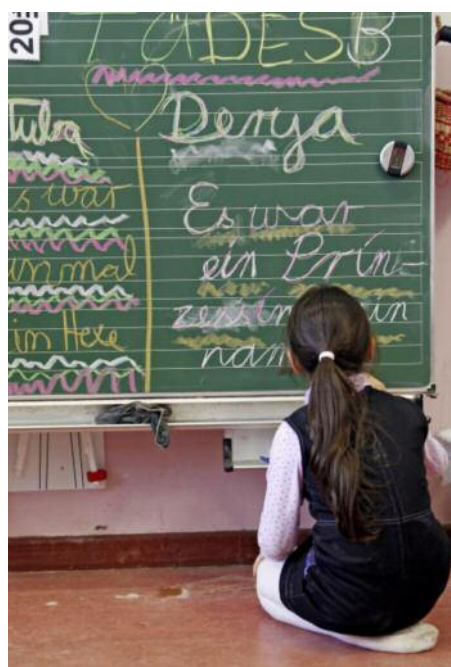 20
Tuba
s war
inmal
in Hexe
Derya
Es war
ein Prin-
zessin
nam